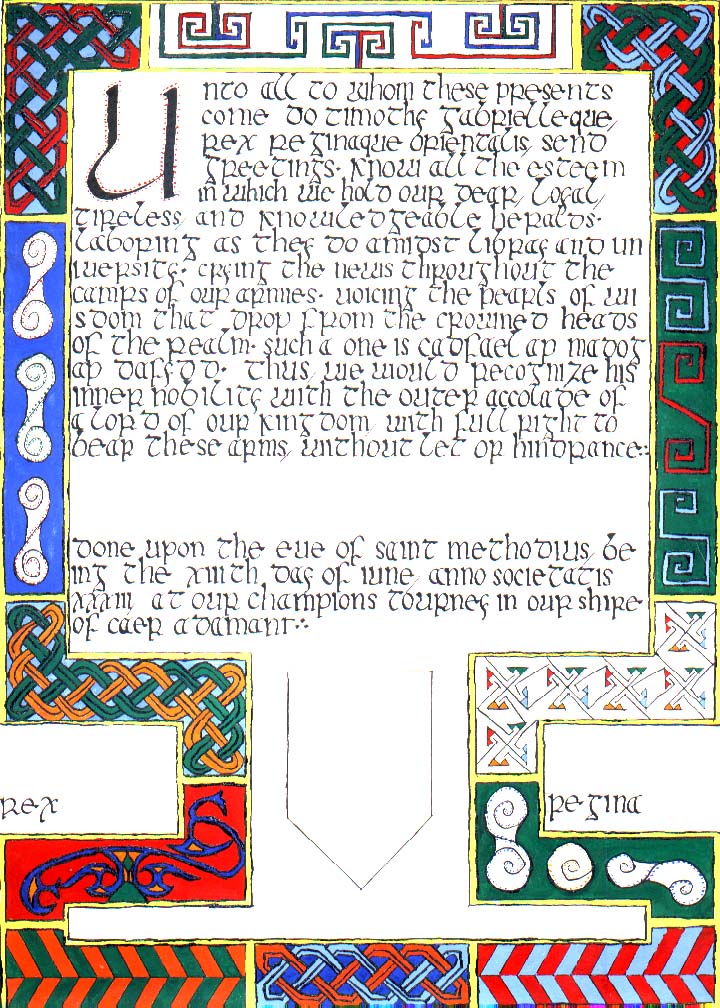 Unto all to whom these presents
come do timothy gabriellequE,
rex reginaque orientalis, send
greetings. Know all the esteem
in which we hold our dear, loyal,
tireless, and knowledgeable heralds.
laboring as they do amidst libray and un
iversity. crying the news throughout the
camps of our armies. voicing the pearls of wi
sdom that drop from the crowned heads
of the realm. such a one is cadfael ap madog
ap dafydd. thus, we would recognize his
inner nobility with the outer accolade of
a lord of our kingdom with full right to
bear these arms, without let or hindrance:.
done upon the eve of saint methodius, be
ing the xiiith day of iune, anno societatis
xxxiii, at our champions tourney in our shire
of caer adamant:.
rex
regina